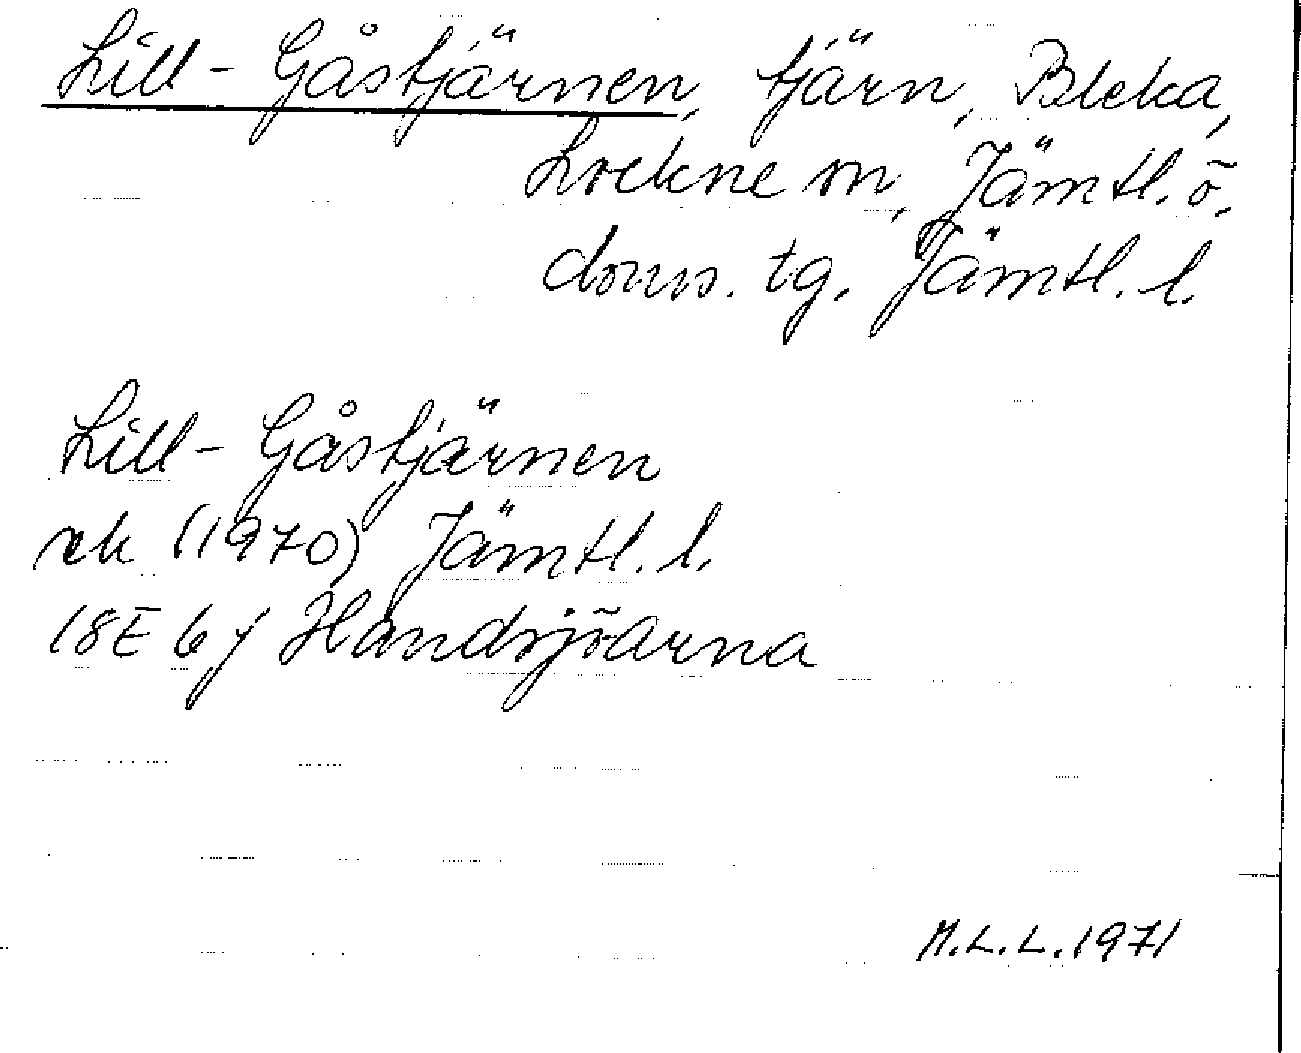 Lill-Gåstjärnen, tjärn, Bleka,
Lockne sn, Jämtl. ö.
doms. tg. Jämtl. l.
Lill-Gåstjärnen
rek (1970) Jämtl. l.
18E 6j Handsjöarna
M.L.L. 1971